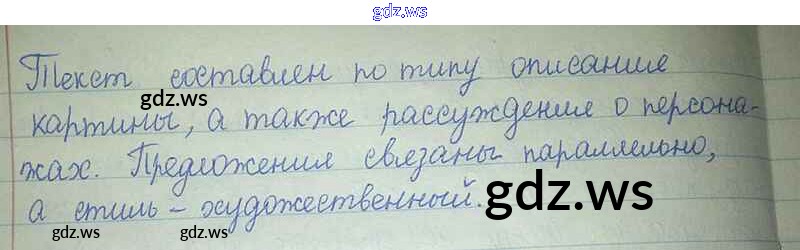 gdz.ws
Текст составлен по типу описание
gdz.ws
картины, а также рассуждение о персона-
жах. Предложения связаны параллельно,
а стиль – художественный.
gdz.ws
gdz.ws gdz.ws gdz.ws